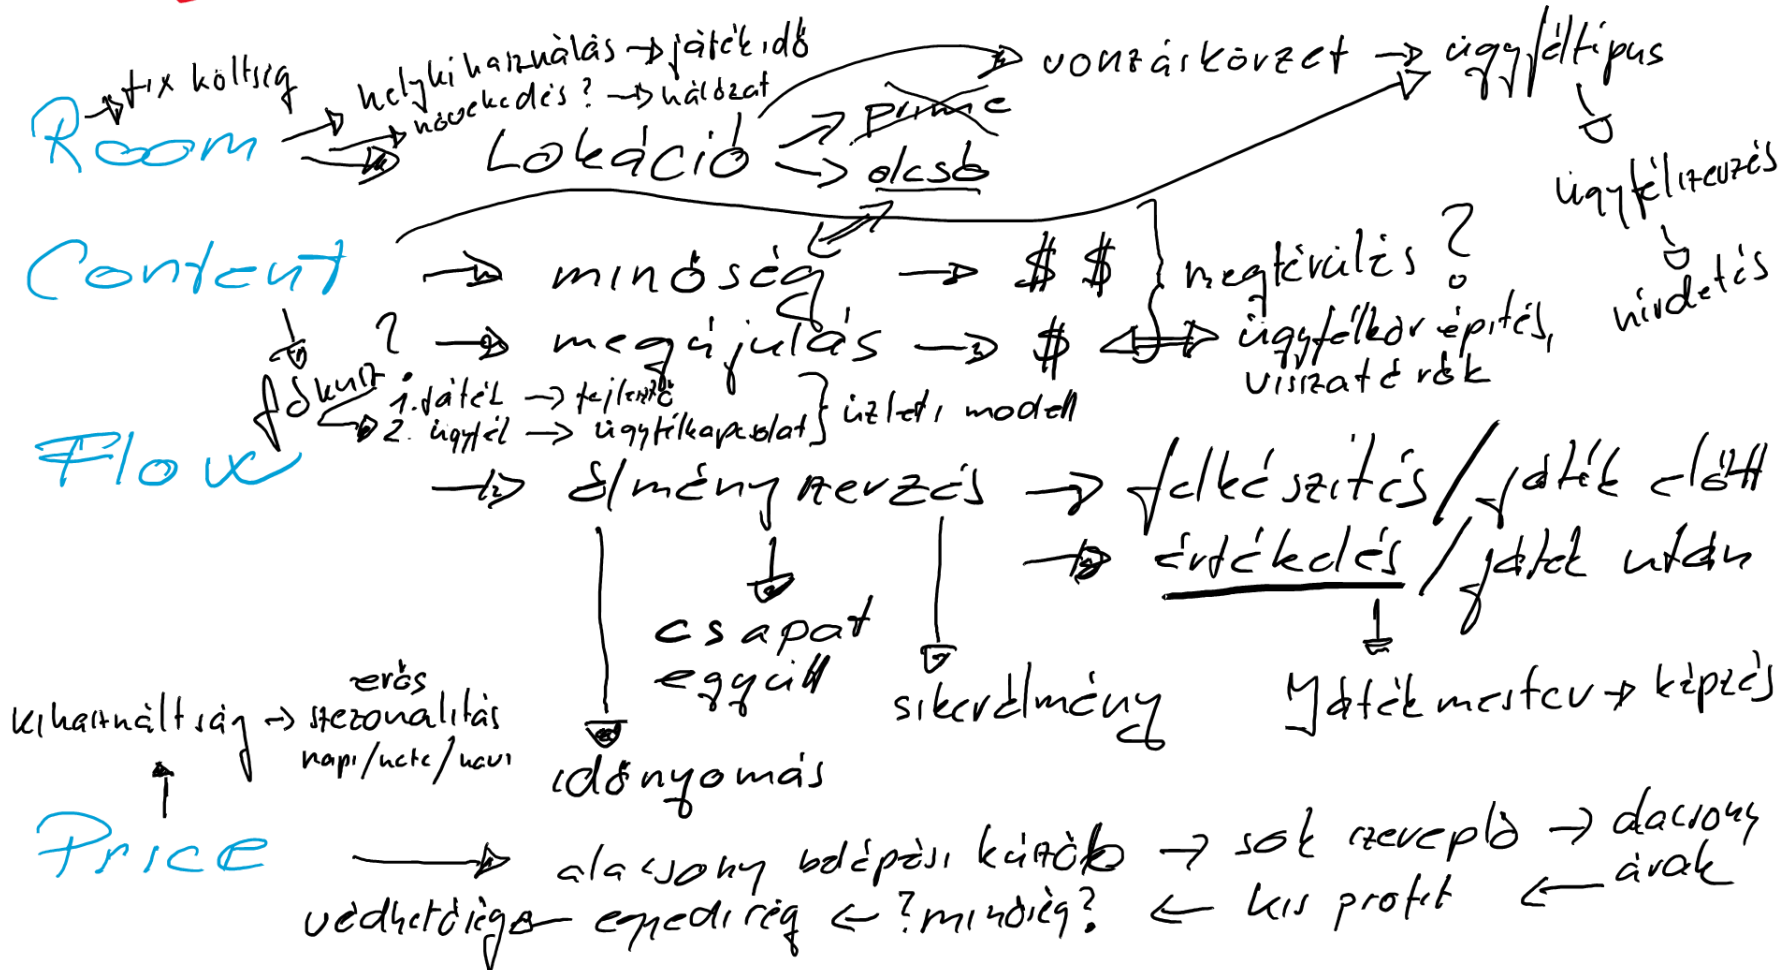 Room → fix költség
→ helykihasználás → játékidő
→ növekedés? → hálózat
→ Lokáció → prime
→ olcsó
→ vonzáskörzet → ügyféltípus
ügyfélszerzés
hirdetés
Content → minőség → $ $
? → megújulás → $
megtérülés?
ügyfélkör építés,
visszatérők
fókusz
1. játék → fejlesztő
2. ügyfél → ügyfélkapcsolat
üzleti modell
Flow → élményszerzés → felkészítés / játék előtt
→ értékelés / játék után
csapat
együtt
sikerélmény
időnyomás
Játékmester → képzés
kihasználtság → erős
szezonalitás
napi/heti/havi
Price → alacsony belépési küszöb → sok szereplő → alacsony
árak
védhetőség ← egyediség ← ?minőség? ← kis profit ←